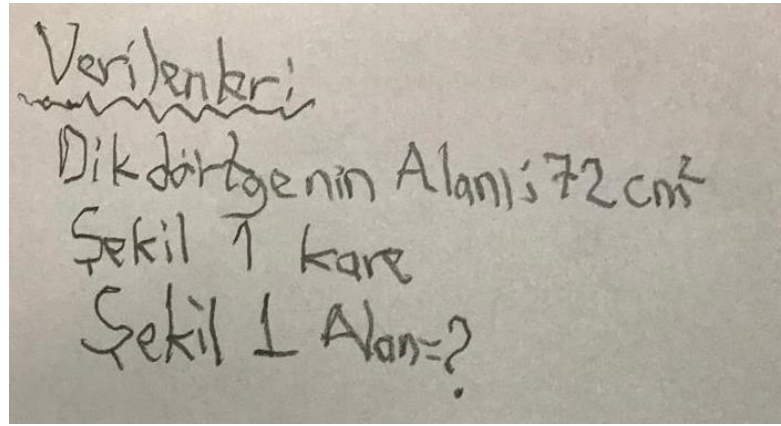 Verilenler:
Dikdörtgenin Alanı: 72 cm²
Şekil 1 kare
Şekil 1 Alan=?